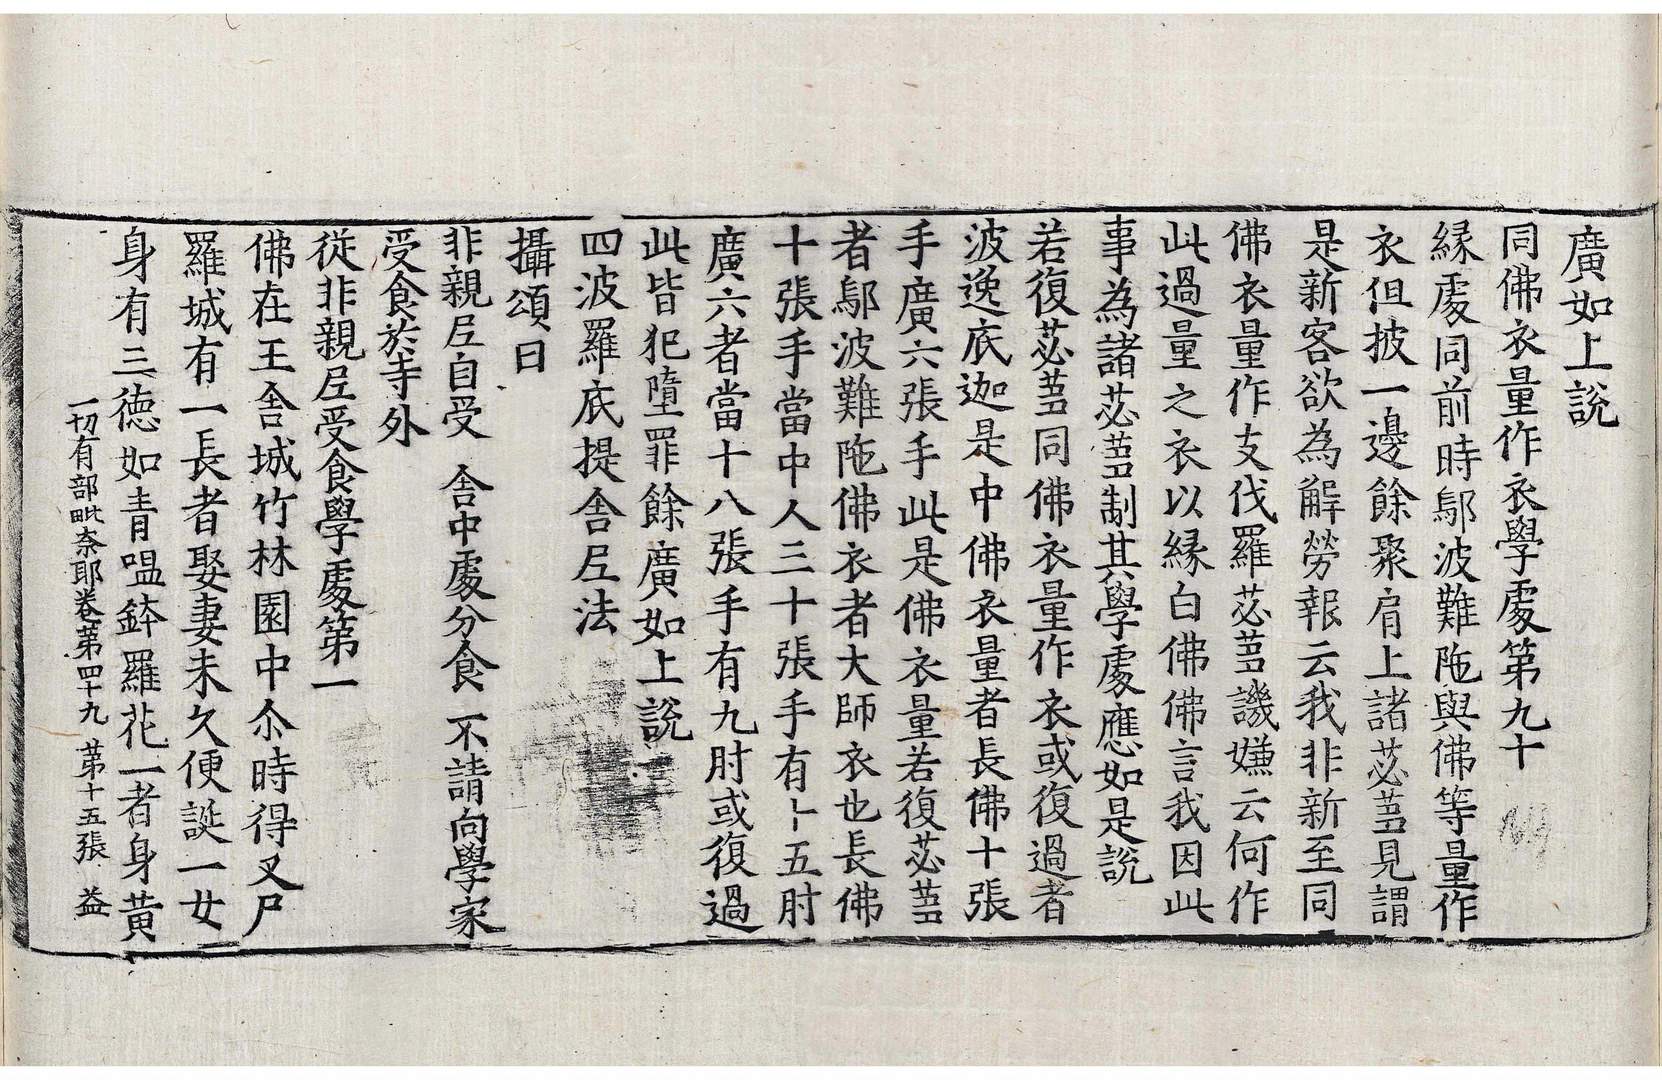 廣如上說
同佛衣量作衣學處第九十
緣處同前時鄔波難陁與佛等量作
衣但披一邊餘聚肩上諸苾蒭見謂
是新客欲為解勞報云我非新至同
佛衣量作支伐羅苾蒭譏嫌云何作
此過量之衣以緣白佛佛言我因此
事為諸苾蒭制其學處應如是說
若復苾蒭同佛衣量作衣或復過者
波逸底迦是中佛衣量者長佛十張
手廣六張手此是佛衣量若復苾蒭
者鄔波難陁佛衣者大師衣也長佛
十張手當中人三十張手有十五肘
廣六者當十八張手有九肘或復過
此皆犯墮罪餘廣如上說
四波羅底提舍尼法
攝頌曰
非親尼自受 舍中處分食 不請向學家
受食於寺外
從非親尼受食學處第一
佛在王舍城竹林園中尒時得叉尸
羅城有一長者娶妻未久便誕一女
身有三德如青嗢鉢羅花一者身黃
一切有部毗奈耶卷第四十九 第十五張 益